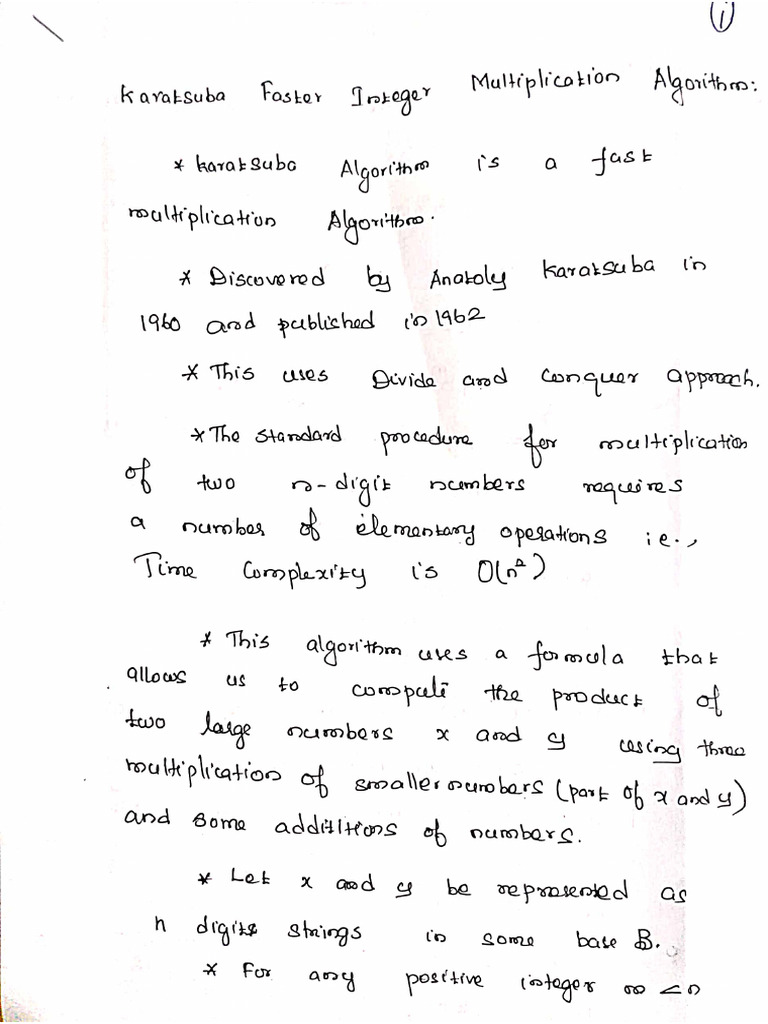 1
Karatsuba Faster Integer Multiplication Algorithm:
* Karatsuba Algorithm is a fast
multiplication Algorithm.
* Discovered by Anatoly Karatsuba in
1960 and published in 1962
* This uses Divide and Conquer approach.
* The standard procedure for multiplication
of two n-digit numbers requires
a number of elementary operations i.e.,
Time Complexity is O(n²)
* This algorithm uses a formula that
allows us to compute the product of
two large numbers x and y using three
multiplication of smaller numbers (part of x and y)
and some additions of numbers.
* Let x and y be represented as
n digits strings in some base B.
* For any positive integer m < n